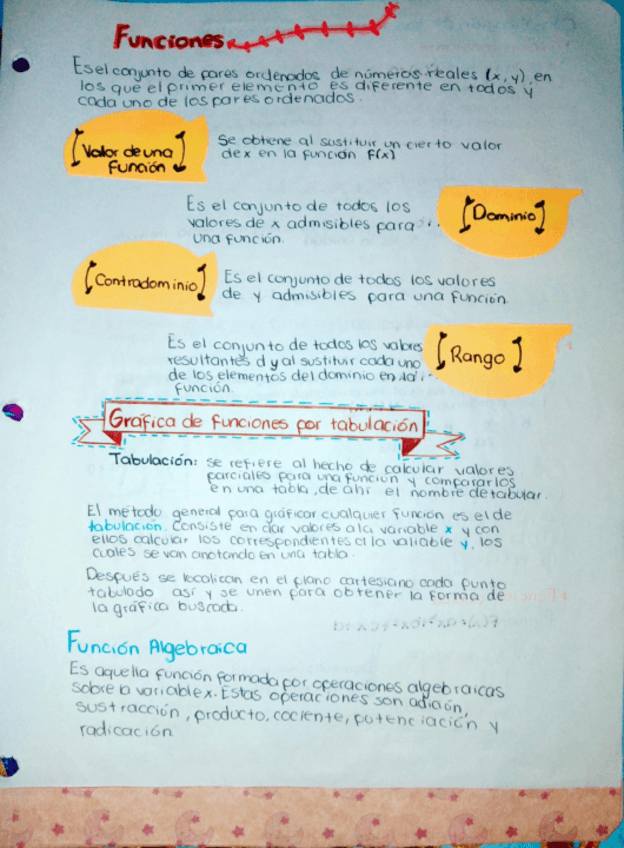 Funciones
Es el conjunto de pares ordenados de números reales (x, y), en
los que el primer elemento es diferente en todos y
cada uno de los pares ordenados.
[Valor de una
Función]
Se obtiene al sustituir un cierto valor
de x en la función F(x)
Es el conjunto de todos los
valores de x admisibles para
una función.
[Dominio]
[Contradominio]
Es el conjunto de todos los valores
de y admisibles para una función.
Es el conjunto de todos los valores
resultantes d y al sustituir cada uno
de los elementos del dominio en la
función.
[Rango]
Gráfica de funciones por tabulación
Tabulación: se refiere al hecho de calcular valores
parciales para una función y compararlos
en una tabla, de ahí el nombre de tabular.
El método general para gráficar cualquier función es el de
tabulación. Consiste en dar valores a la variable x y con
ellos calcular los correspondientes a la valiable y, los
cuales se van anotando en una tabla.
Después se localizan en el plano cartesiano cada punto
tabulado así y se unen para obtener la forma de
la gráfica buscada.
Función Algebraica
Es aquella función formada por operaciones algebraicas
sobre la variable x. Estas operaciones son adición,
sustracción, producto, cociente, potenciación y
radicación